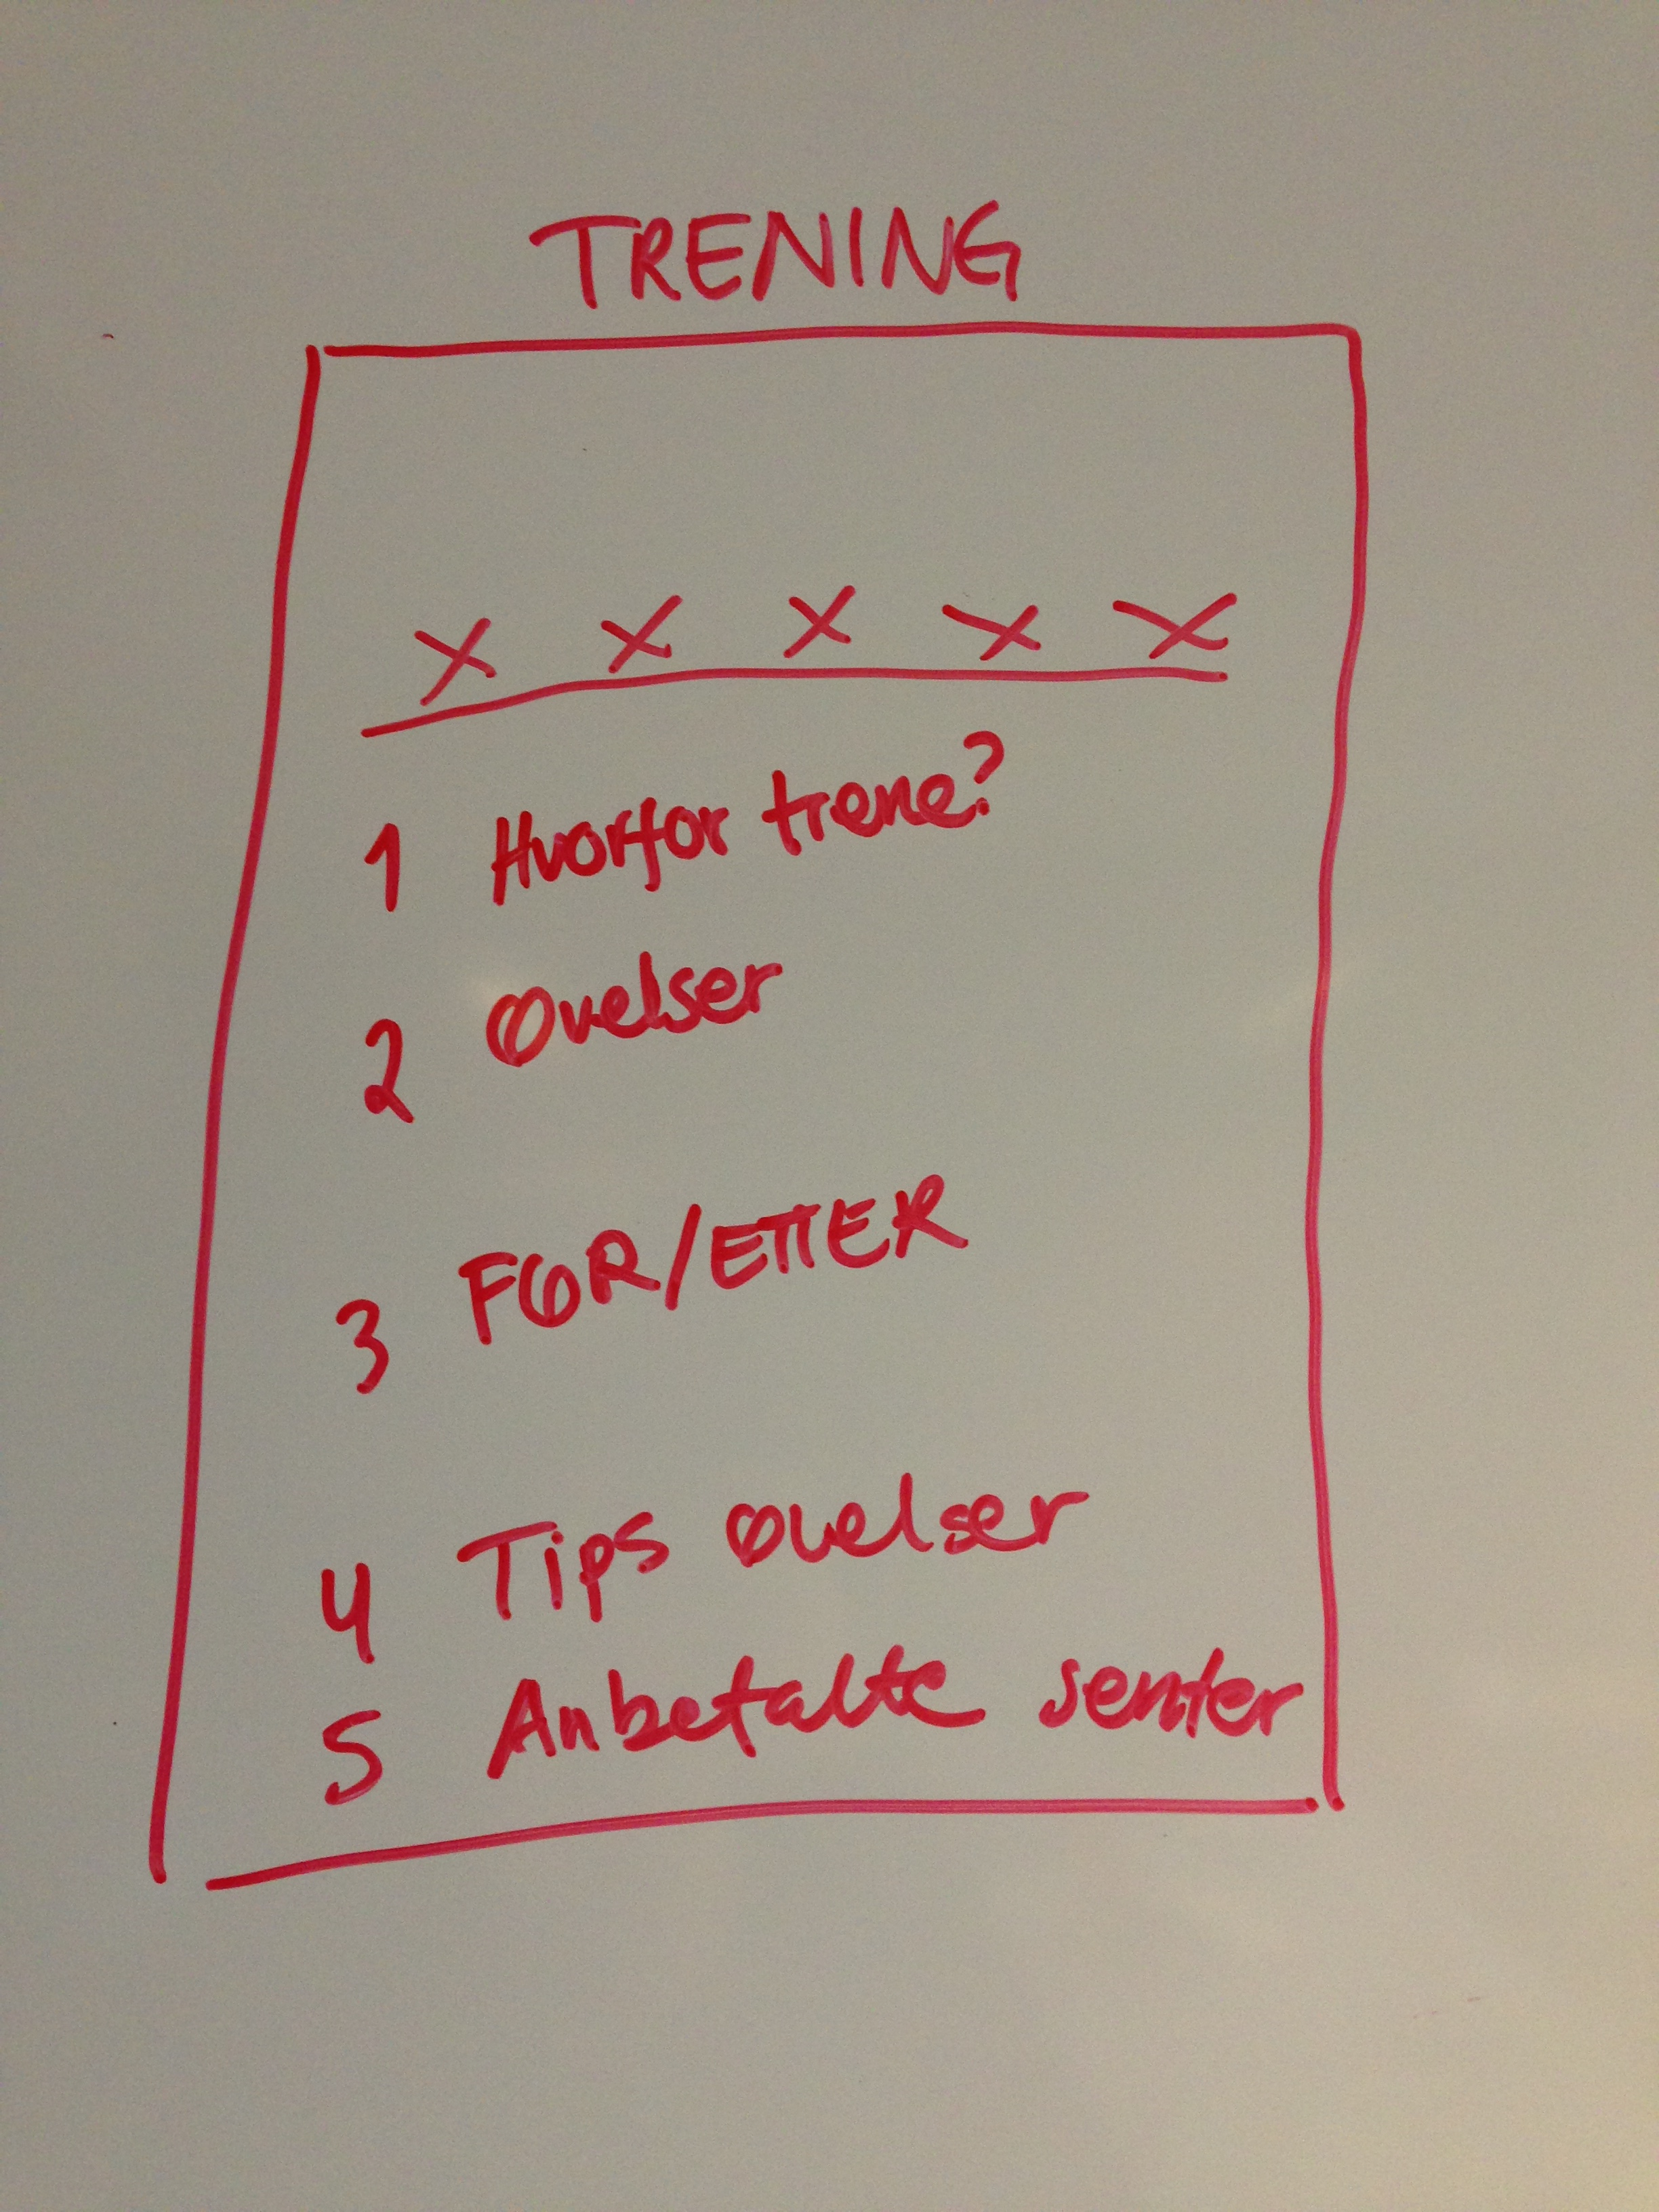 TRENING
X X X X X
1 Hvorfor trene?
2 Øvelser
3 FØR/ETTER
4 Tips øvelser
5 Anbefalte senter